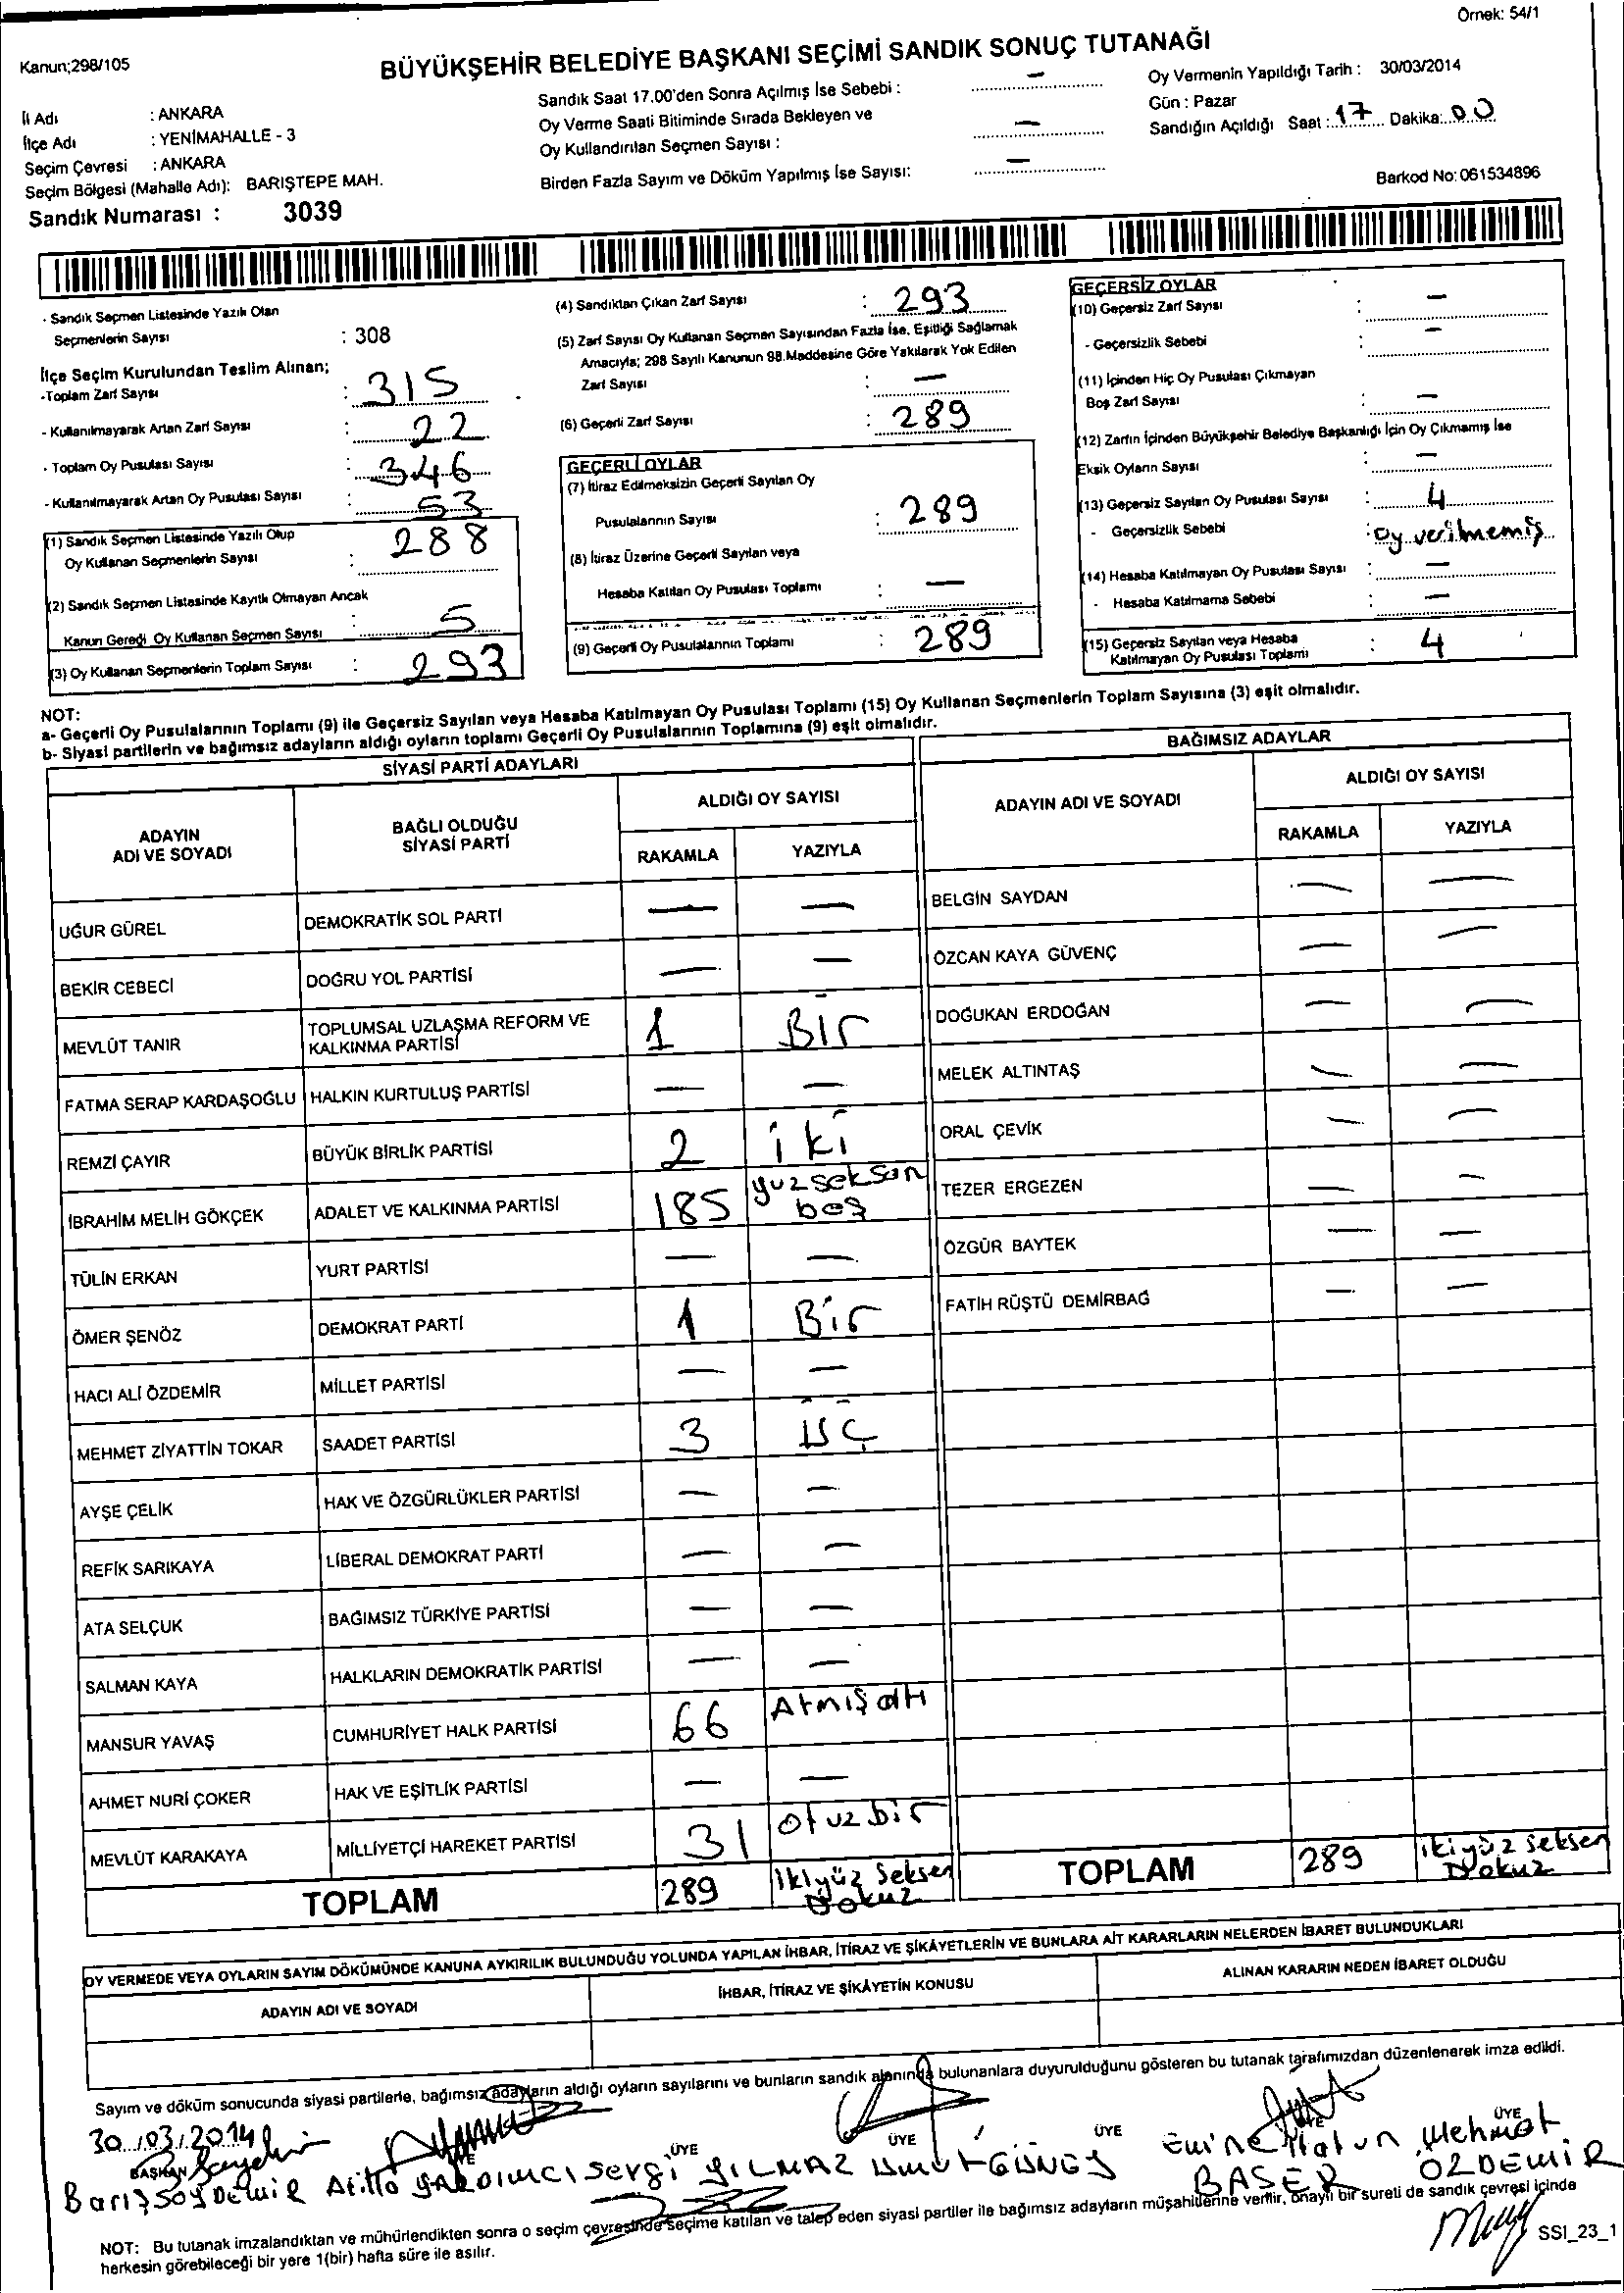 Örnek: 54/1
Kanun;298/105
BÜYÜKŞEHİR BELEDİYE BAŞKANI SEÇİMİ SANDIK SONUÇ TUTANAĞI
İl Adı : ANKARA
İlçe Adı : YENİMAHALLE - 3
Seçim Çevresi : ANKARA
Seçim Bölgesi (Mahalle Adı): BARIŞTEPE MAH.
Sandık Numarası : 3039
Sandık Saat 17.00'den Sonra Açılmış İse Sebebi : —
Oy Verme Saati Bitiminde Sırada Bekleyen ve
Oy Kullandırılan Seçmen Sayısı : —
Birden Fazla Sayım ve Döküm Yapılmış İse Sayısı: —
Oy Vermenin Yapıldığı Tarih : 30/03/2014
Gün : Pazar
Sandığın Açıldığı Saat : 17 Dakika: 00
Barkod No: 061534896
- Sandık Seçmen Listesinde Yazılı Olan
Seçmenlerin Sayısı : 308
İlçe Seçim Kurulundan Teslim Alınan;
-Toplam Zarf Sayısı : 315
- Kullanılmayarak Artan Zarf Sayısı : 22
- Toplam Oy Pusulası Sayısı : 346
- Kullanılmayarak Artan Oy Pusulası Sayısı : 53
(1) Sandık Seçmen Listesinde Yazılı Olup
Oy Kullanan Seçmenlerin Sayısı : 288
(2) Sandık Seçmen Listesinde Kayıtlı Olmayan Ancak
Kanun Gereği Oy Kullanan Seçmen Sayısı : 5
(3) Oy Kullanan Seçmenlerin Toplam Sayısı : 293
(4) Sandıktan Çıkan Zarf Sayısı : 293
(5) Zarf Sayısı Oy Kullanan Seçmen Sayısından Fazla İse, Eşitliği Sağlamak
Amacıyla; 298 Sayılı Kanunun 98.Maddesine Göre Yakılarak Yok Edilen
Zarf Sayısı : —
(6) Geçerli Zarf Sayısı : 289
GEÇERLİ OYLAR
(7) İtiraz Edilmeksizin Geçerli Sayılan Oy
Pusulalarının Sayısı : 289
(8) İtiraz Üzerine Geçerli Sayılan veya
Hesaba Katılan Oy Pusulası Toplamı : —
(9) Geçerli Oy Pusulalarının Toplamı : 289
GEÇERSİZ OYLAR
(10) Geçersiz Zarf Sayısı : —
- Geçersizlik Sebebi : —
(11) İçinden Hiç Oy Pusulası Çıkmayan
Boş Zarf Sayısı : —
(12) Zarfın İçinden Büyükşehir Belediye Başkanlığı İçin Oy Çıkmamış İse
Eksik Oyların Sayısı : —
(13) Geçersiz Sayılan Oy Pusulası Sayısı : 4
- Geçersizlik Sebebi : oy verilmemiş
(14) Hesaba Katılmayan Oy Pusulası Sayısı : —
- Hesaba Katılmama Sebebi : —
(15) Geçersiz Sayılan veya Hesaba
Katılmayan Oy Pusulası Toplamı : 4
NOT:
a- Geçerli Oy Pusulalarının Toplamı (9) ile Geçersiz Sayılan veya Hesaba Katılmayan Oy Pusulası Toplamı (15) Oy Kullanan Seçmenlerin Toplam Sayısına (3) eşit olmalıdır.
b- Siyasi partilerin ve bağımsız adayların aldığı oyların toplamı Geçerli Oy Pusulalarının Toplamına (9) eşit olmalıdır.
SİYASİ PARTİ ADAYLARI
ADAYIN ADI VE SOYADI
BAĞLI OLDUĞU SİYASİ PARTİ
ALDIĞI OY SAYISI
RAKAMLA YAZIYLA
UĞUR GÜREL DEMOKRATİK SOL PARTİ — —
BEKİR CEBECİ DOĞRU YOL PARTİSİ — —
MEVLÜT TANIR TOPLUMSAL UZLAŞMA REFORM VE KALKINMA PARTİSİ 1 Bir
FATMA SERAP KARDAŞOĞLU HALKIN KURTULUŞ PARTİSİ — —
REMZİ ÇAYIR BÜYÜK BİRLİK PARTİSİ 2 iki
İBRAHİM MELİH GÖKÇEK ADALET VE KALKINMA PARTİSİ 185 yuzseksan beş
TÜLİN ERKAN YURT PARTİSİ — —
ÖMER ŞENÖZ DEMOKRAT PARTİ 1 Bir
HACI ALİ ÖZDEMİR MİLLET PARTİSİ — —
MEHMET ZİYATTİN TOKAR SAADET PARTİSİ 3 üç
AYŞE ÇELİK HAK VE ÖZGÜRLÜKLER PARTİSİ — —
REFİK SARIKAYA LİBERAL DEMOKRAT PARTİ — —
ATA SELÇUK BAĞIMSIZ TÜRKİYE PARTİSİ — —
SALMAN KAYA HALKLARIN DEMOKRATİK PARTİSİ — —
MANSUR YAVAŞ CUMHURİYET HALK PARTİSİ 66 Atmış altı
AHMET NURİ ÇOKER HAK VE EŞİTLİK PARTİSİ — —
MEVLÜT KARAKAYA MİLLİYETÇİ HAREKET PARTİSİ 31 otuzbir
TOPLAM 289 ikiyüz seksen Dokuz
BAĞIMSIZ ADAYLAR
ADAYIN ADI VE SOYADI
ALDIĞI OY SAYISI
RAKAMLA YAZIYLA
BELGİN SAYDAN — —
ÖZCAN KAYA GÜVENÇ — —
DOĞUKAN ERDOĞAN — —
MELEK ALTINTAŞ — —
ORAL ÇEVİK — —
TEZER ERGEZEN — —
ÖZGÜR BAYTEK — —
FATİH RÜŞTÜ DEMİRBAĞ — —
TOPLAM 289 ikiyüz seksen Dokuz
OY VERMEDE VEYA OYLARIN SAYIM DÖKÜMÜNDE KANUNA AYKIRILIK BULUNDUĞU YOLUNDA YAPILAN İHBAR, İTİRAZ VE ŞİKÂYETLERİN VE BUNLARA AİT KARARLARIN NELERDEN İBARET BULUNDUKLARI
ADAYIN ADI VE SOYADI
İHBAR, İTİRAZ VE ŞİKÂYETİN KONUSU
ALINAN KARARIN NEDEN İBARET OLDUĞU
Sayım ve döküm sonucunda siyasi partilerle, bağımsız adayların aldığı oyların sayılarını ve bunların sandık alanında bulunanlara duyurulduğunu gösteren bu tutanak tarafımızdan düzenlenerek imza edildi.
30 / 03 / 2014
BAŞKAN ÜYE ÜYE ÜYE ÜYE ÜYE ÜYE
Barış SOYDEMİR Atilla YARDIMCI Sevgi YILMAZ Umut GÜNEŞ Emine Hatun BAŞER Mehmet ÖZDEMİR
NOT: Bu tutanak imzalandıktan ve mühürlendikten sonra o seçim çevresinde seçime katılan ve talep eden siyasi partiler ile bağımsız adayların müşahitlerine verilir, onaylı bir sureti de sandık çevresi içinde
herkesin görebileceği bir yere 1(bir) hafta süre ile asılır.
SSI_23_1